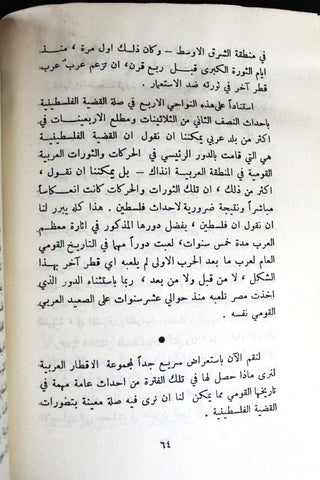 في منطقة الشرق الاوسط – وكان ذلك اول مرة ، منذ
ايام الثورة الكبرى قبل ربع قرن، ان تزعم عرب عرب
قطر آخر في ثورته ضد الاستعمار .
استناداً على هذه النواحي الاربع في صلة القضية الفلسطينية
باحداث النصف الثاني من الثلاثينات ومطلع الاربعينات في
اكثر من بلد عربي يمكننا ان نقول ان القضية الفلسطينية
هي التي قامت بالدور الرئيسي في الحركات والثورات العربية
القومية في المنطقة العربية آنذاك – بل يمكننا ان نقول ،
اكثر من ذلك ، ان تلك الثورات والحركات كانت انعكاساً
مباشراً ونتيجة ضرورية لاحداث فلسطين . هذا كله يبرر لنا
ان نقول ان فلسطين ، بفضل دورها المذكور في اثارة معظم
العرب مدة خمس سنوات، لعبت دوراً مهما في التاريخ القومي
العام لعرب ما بعد الحرب الاولى لم يلعبه اي قطر آخر بهذا
الشكل ، لا من قبل ولا من بعد ، ربما باستثناء الدور الذي
اخذت مصر تلعبه منذ حوالي عشر سنوات على الصعيد العربي
القومي نفسه .
●
لنقم الآن باستعراض سريع جداً لمجموعة الاقطار العربية
لنرى ماذا حصل لها في تلك الفترة من احداث عامة مهمة في
تاريخها القومي مما يمكن لنا ان نرى فيه صلة معينة بتطورات
القضية الفلسطينية .
٦٤